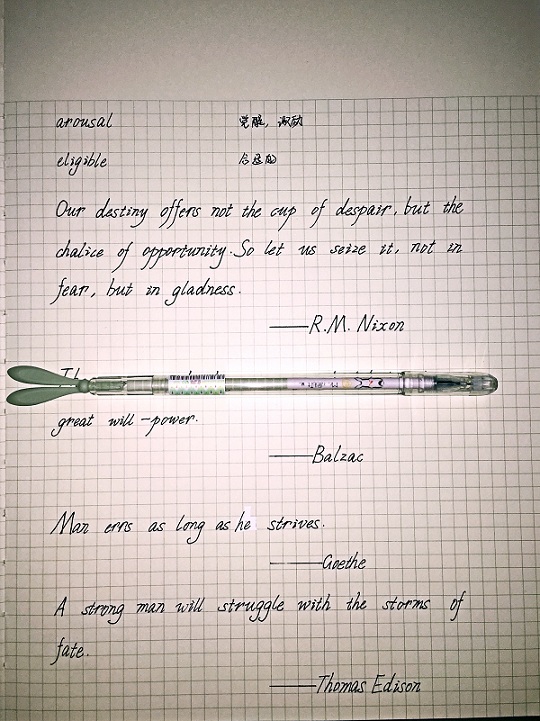 arousal 觉醒，激励
eligible 合适的
Our destiny offers not the cup of despair, but the
chalice of opportunity. So let us seize it, not in
fear, but in gladness.
——R.M. Nixon
great will-power.
——Balzac
Man errs as long as he strives.
——Goethe
A strong man will struggle with the storms of
fate.
——Thomas Edison